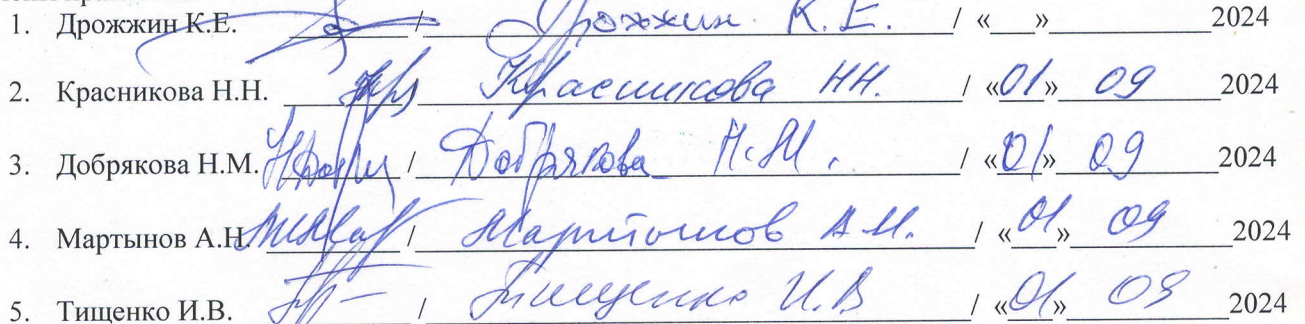 1. Дрожжин К.Е. / Дрожжин К.Е. / « » 2024
2. Красникова Н.Н. Красникова Н.Н. / «01» 09 2024
3. Добрякова Н.М. / Добрякова Н.М. / «01» 09 2024
4. Мартынов А.Н. / Мартынов А.Н. / «01» 09 2024
5. Тищенко И.В. / Тищенко И.В / «01» 09 2024